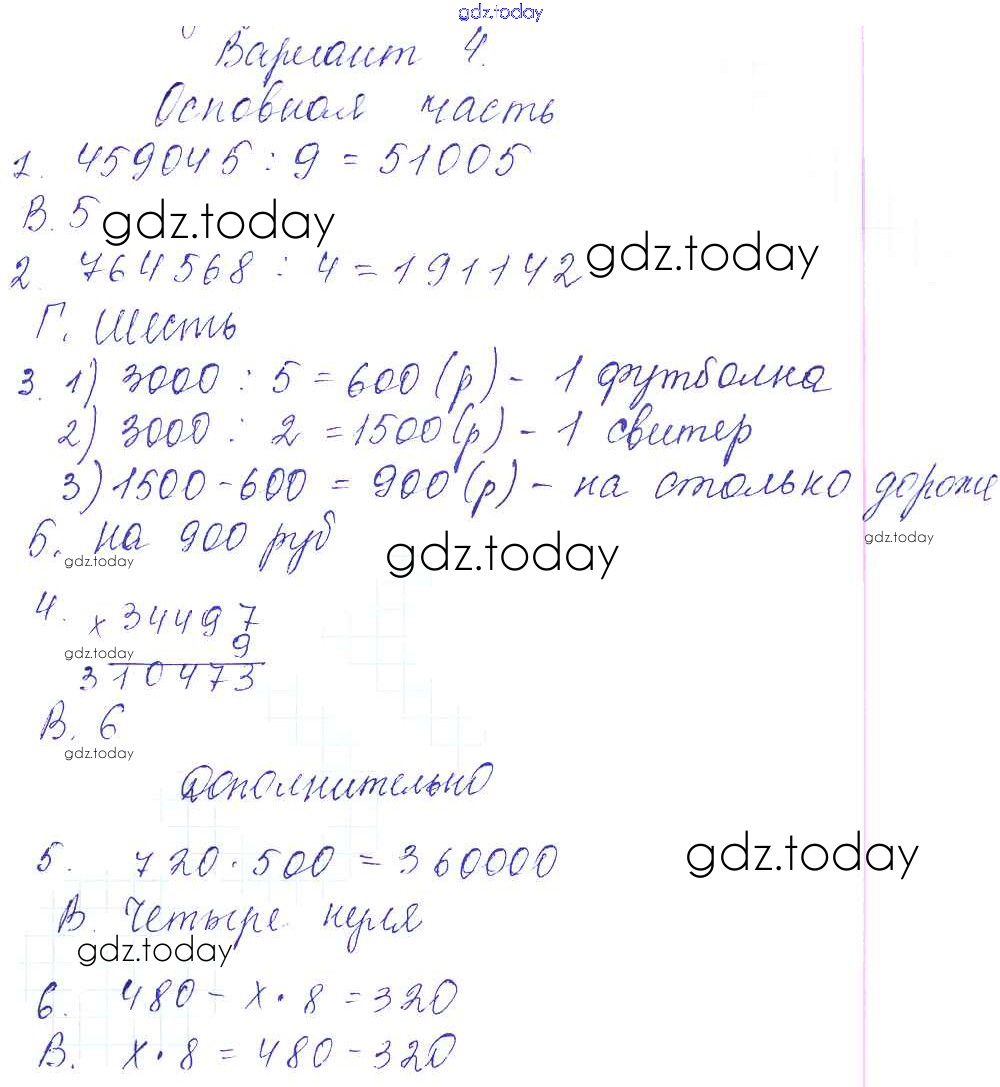 gdz.today
Вариант 4.
Основная часть
1. 459045 : 9 = 51005
В. 5
gdz.today
gdz.today
2. 764568 : 4 = 191142
Г. Шесть
3. 1) 3000 : 5 = 600 (р) - 1 футболка
2) 3000 : 2 = 1500 (р) - 1 свитер
3) 1500 - 600 = 900 (р) - на столько дороже
Б. на 900 руб
gdz.today
gdz.today
gdz.today
4. х 34497
9
gdz.today
310473
В. 6
gdz.today
Дополнительно
5. 720 · 500 = 360000
gdz.today
В. Четыре нуля
gdz.today
6. 480 - х · 8 = 320
В. х · 8 = 480 - 320